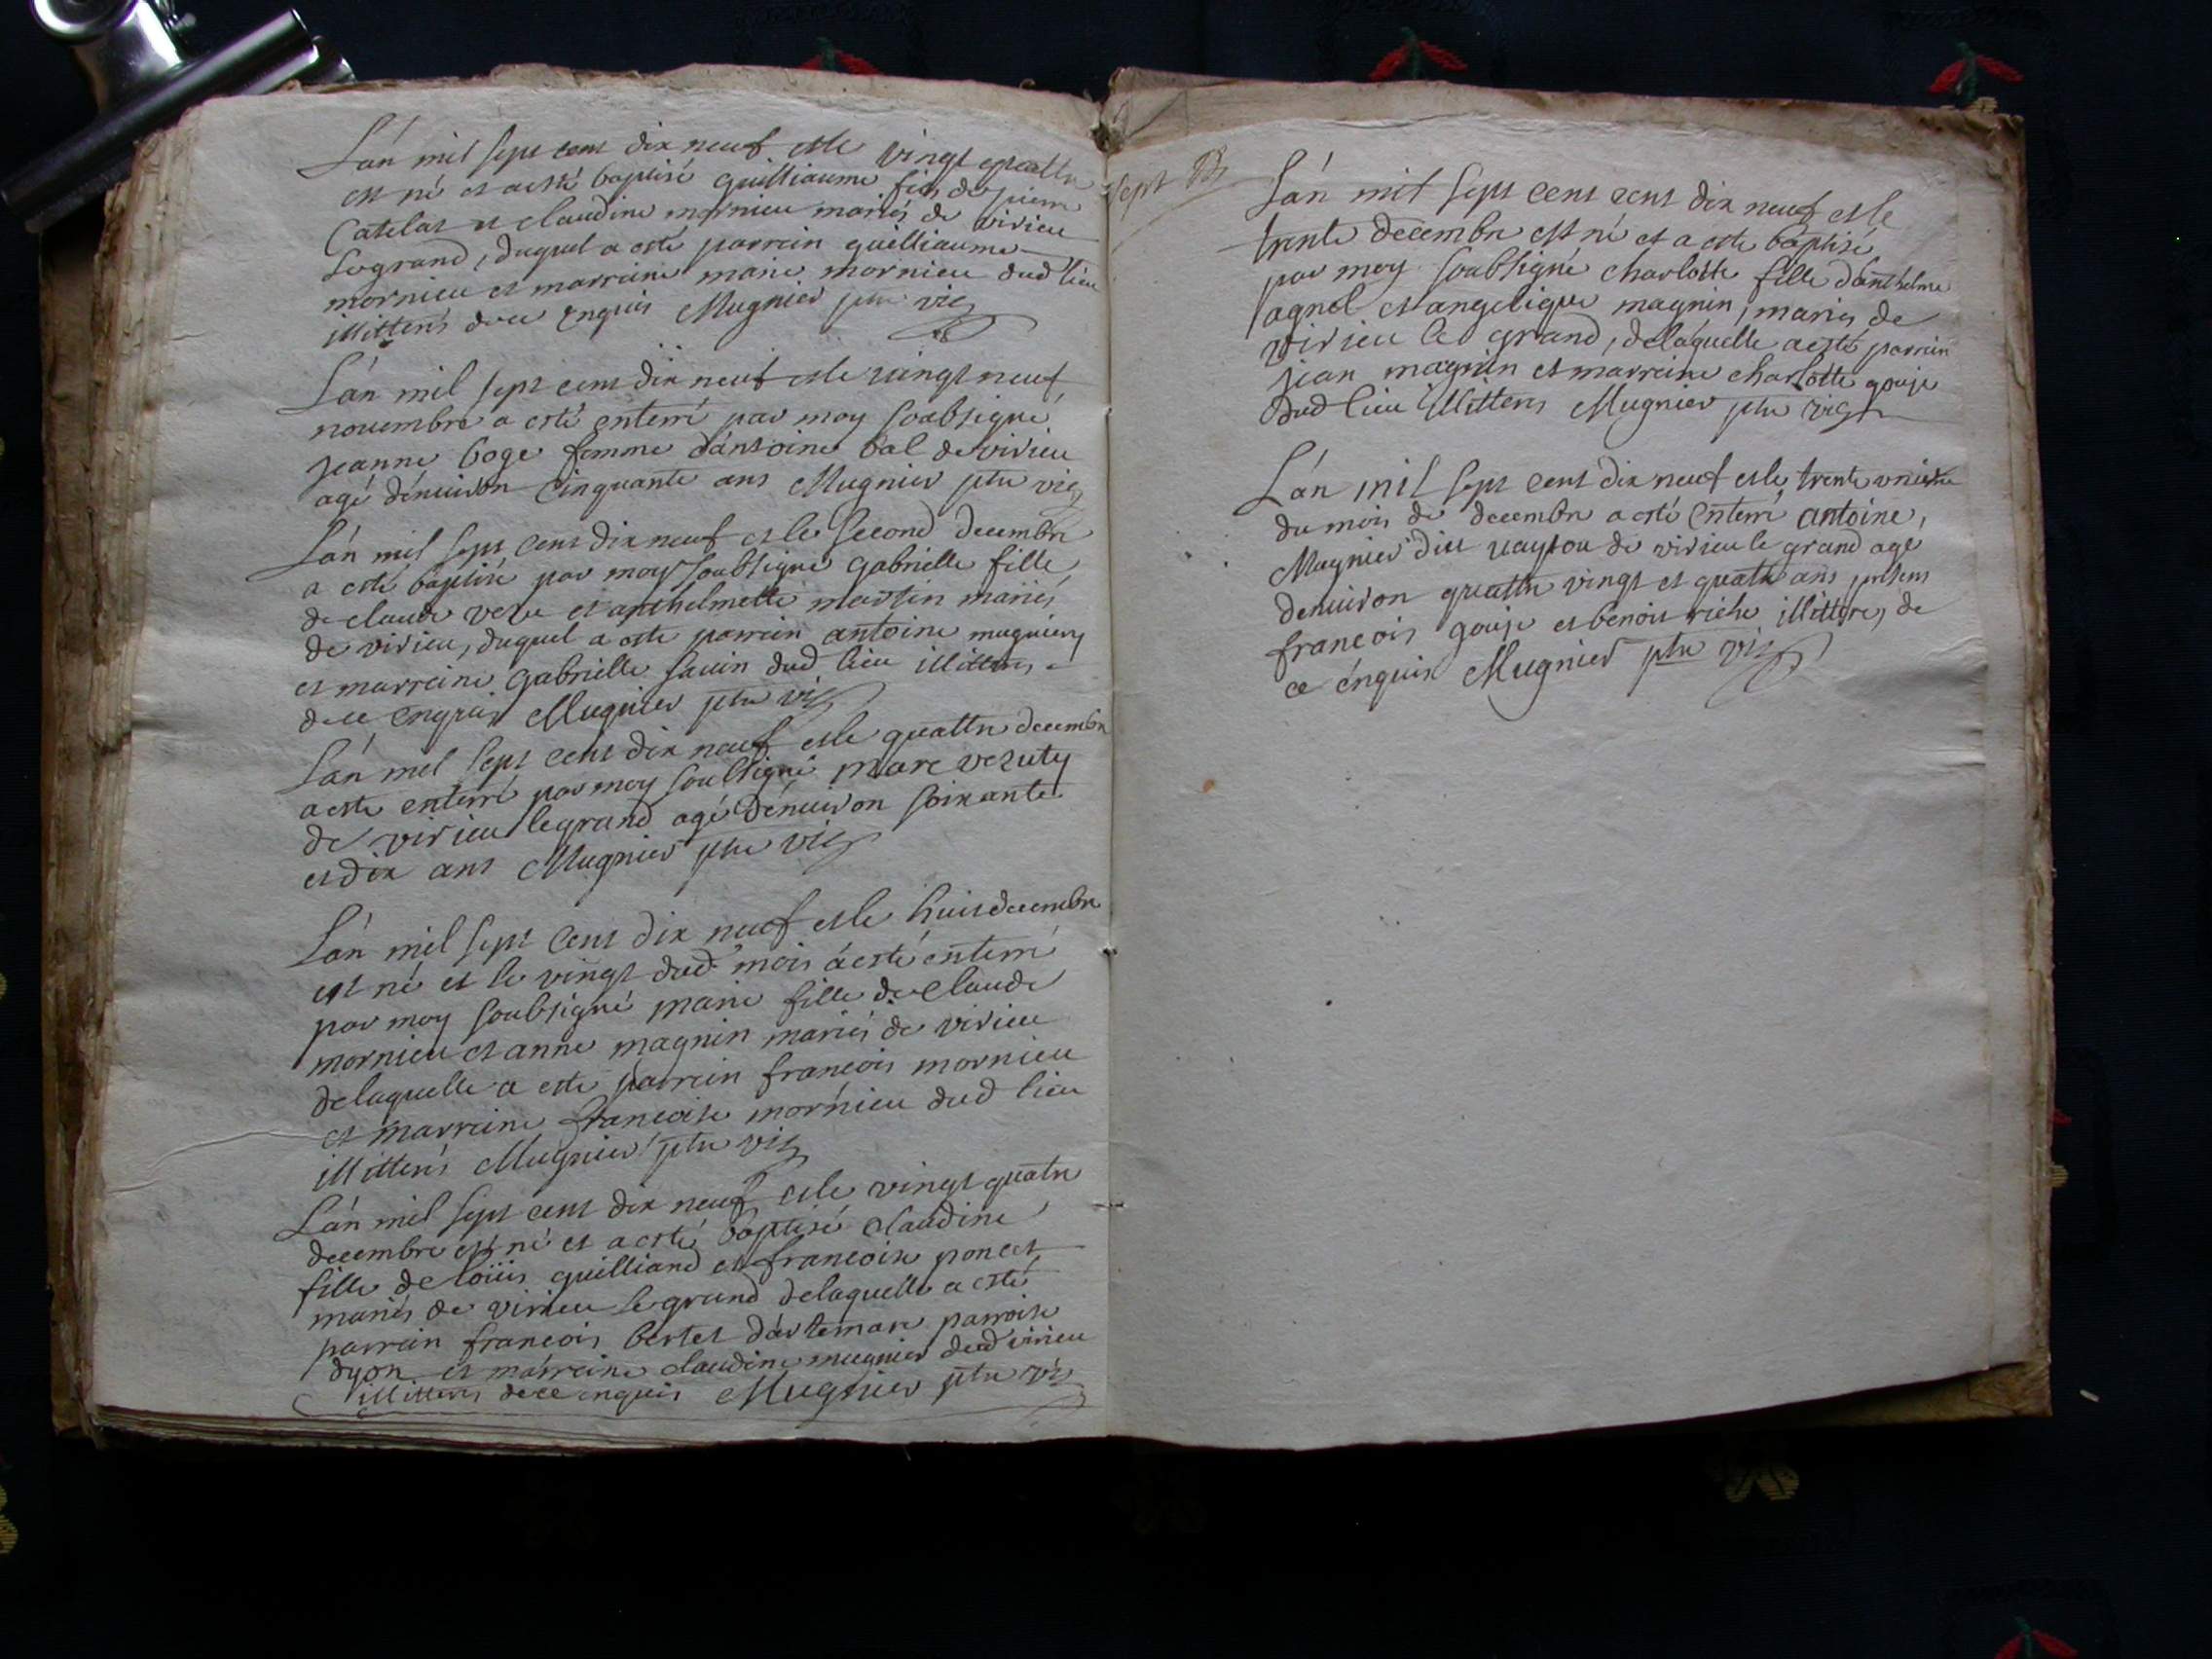 Lán mil sept cent dix neuf et le vingt quattre
est né et a esté baptisé guilliaume fils de pierre
Catelat et claudine mornieu mariés de virieu
legrand, duquel a esté parrain guilliaume
mornieu et marraine marie mornieu dud lieu
illitterés de ce enquis Mugnier ptre vic
Lán mil sept cent dix neuf et le vingt neuf
novembre a esté enterré par moy soubsigné
jeanne boge femme dántoine bal de virieu
agé dénuiron Cinquante ans Mugnier ptre vic
Lán mil sept cent dix neuf et le second decembre
a esté baptisé par moy soubsigné gabrielle fille
de claude et anthelmette martin mariés
de virieu, duquel a esté parrain antoine mugnier
et marraine gabrielle savin dud lieu illitterés
de ce enquis Mugnier ptre vic
Lán mil sept cent dix neuf et le quattre decembre
a esté enterré par moy soubsigné marc vezuty
de virieu legrand agé dénuiron soixante
et dix ans Mugnier ptre vic
Lán mil sept cent dix neuf et le huit decembre
est né et le vingt dud mois a esté enterré
par moy soubsigné marie fille de claude
mornieu et anne magnin mariés de virieu
delaquelle a esté parrain francois mornieu
et marraine francoise mornieu dud lieu
illitterés Mugnier ptre vic
Lán mil sept cent dix neuf et le vingt quatre
decembre est né et a esté baptisé claudine
fille de loüis guilliand et francoise poncet
mariés de virieu le grand delaquelle a esté
parrain francois bertet dártemare parroise
dyon et marraine claudine mugnier dud virieu
illitterés de ce enquis Mugnier ptre vic
sept
Lán mil sept cent cent dix neuf et le
trente decembre est né et a esté baptisé
par moy soubsigné charlotte fille dánthelme
agnel et angelique magnin, mariés de
virieu le grand, delaquelle a esté parrain
jean magnin et marraine charlotte gouje
dud lieu illitterés Mugnier ptre vic
Lán mil sept cent dix neuf et le trente unieme
du mois de decembre a esté enterré antoine,
Mugnier dit de virieu le grand agé
denuiron quattre vingt et quatre ans presens
francois gouje et benoit riche illitterés de
ce énquis Mugnier ptre vic